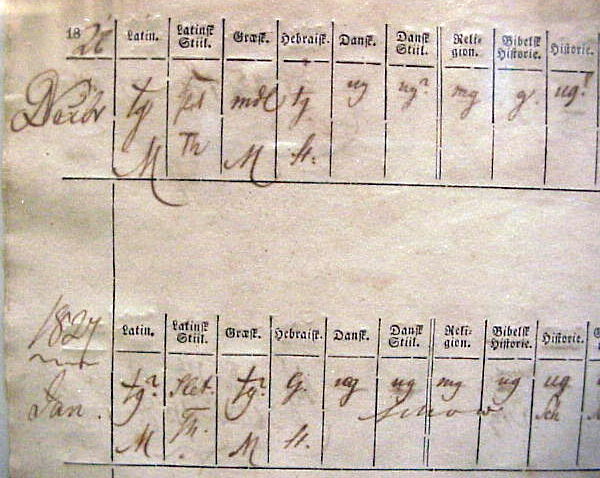 1826 Latin. Latinsk Stiil. Græsk. Hebraisk. Dansk. Dansk Stiil. Reli-gion. Bibelsk Historie. Historie.
Decbr tg mdl tg ug ug? mg g. ug?
M Th M H.
1827 Latin. Latinsk Stiil. Græsk. Hebraisk. Dansk. Dansk Stiil. Reli-gion. Bibelsk Historie. Historie.
Jan. tg? Slet. tg? G. ug ug mg ug ug
M Th. M H.